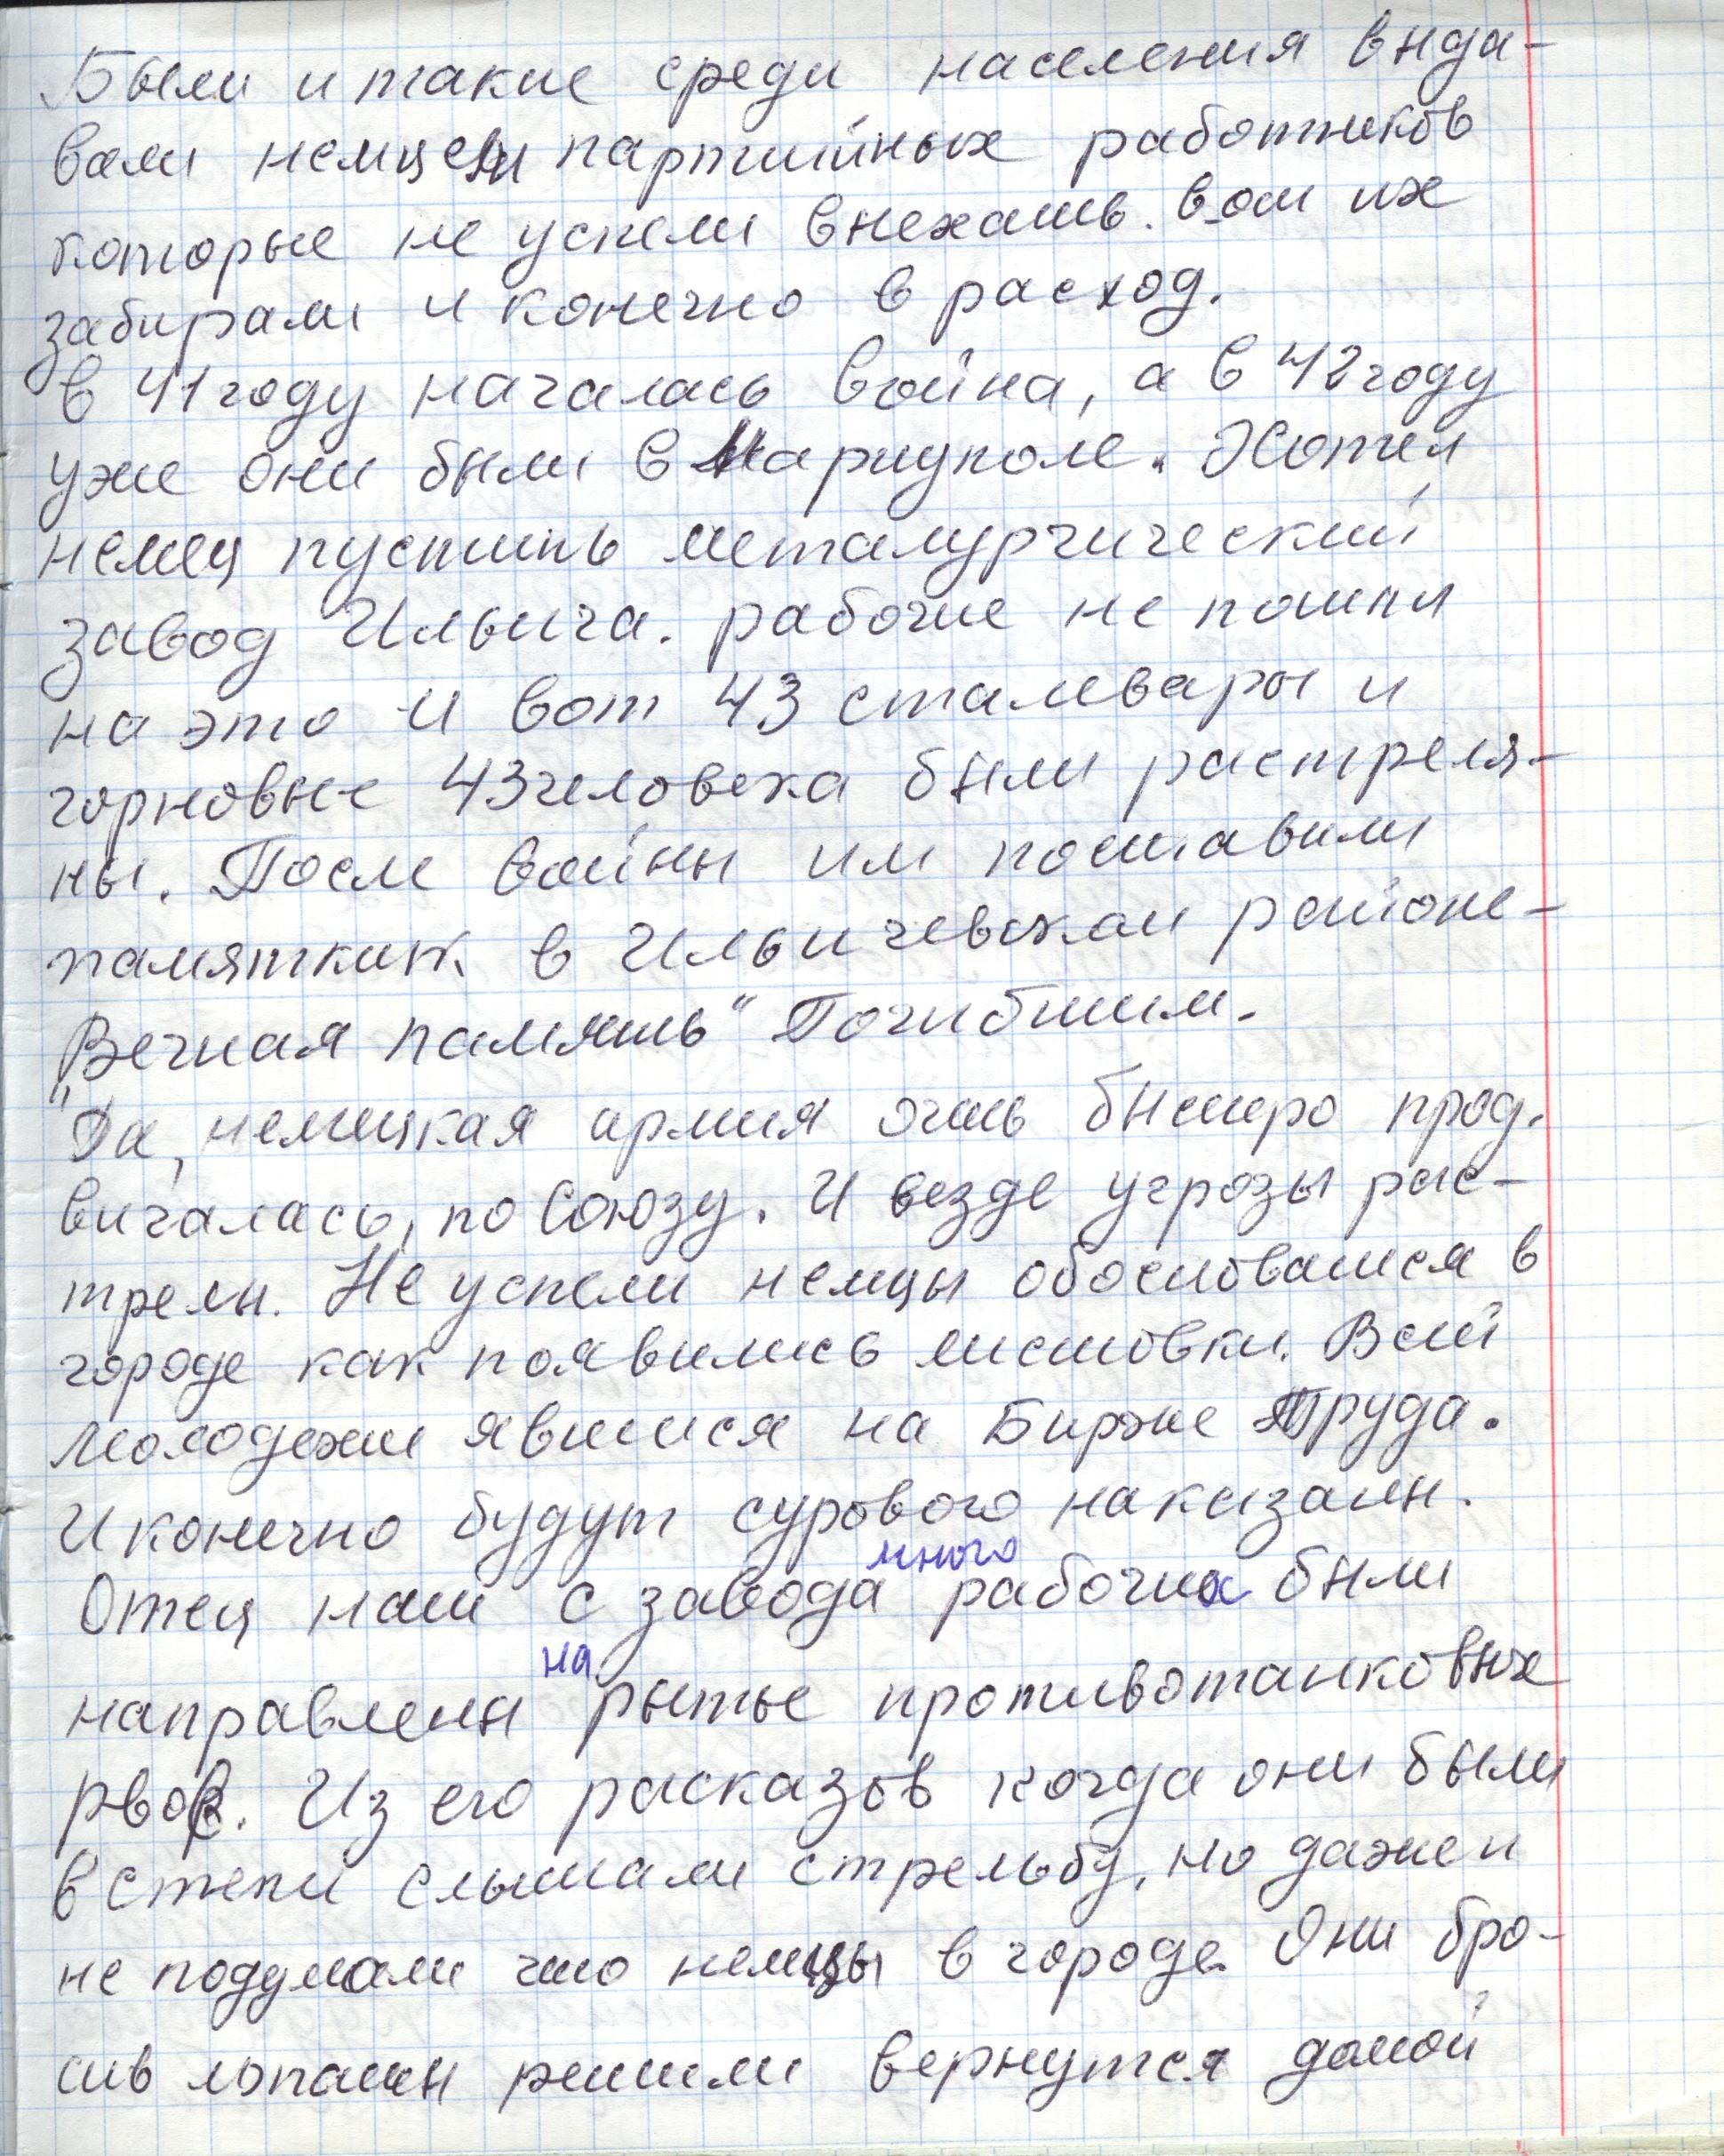 Были и такие среди населения выда-
вали немцам партийных работников
которые не успели выехать. вот их
забирали и конечно в расход.
в 41 году началась война, а в 42 году
уже они были в Мариуполе. Хотел
немец пустить металургический
завод Ильича. рабочие не пошли
на это и вот 43 сталевары и
горновые 43 человека были растреля-
ны. После войны им поставили
памяткик в Ильичевском районе-
„Вечная память" Погибшим.
Да, немецкая армия очень быстро прод.
вигалась, по Союзу. И везде угрозы рас-
трелы. Не успели немцы обосноватся в
городе как появились листовки. Всей
молодежи явится на Бирже Труда.
И конечно будут сурового наказаны.
Отец наш с завода много рабочих были
направлены на рытье противотанковых
рвов. Из его расказов когда они были
в степи слышали стрельбу, но даже и
не подумали что немцы в городе. Они бро-
сив лопаты решили вернутся домой